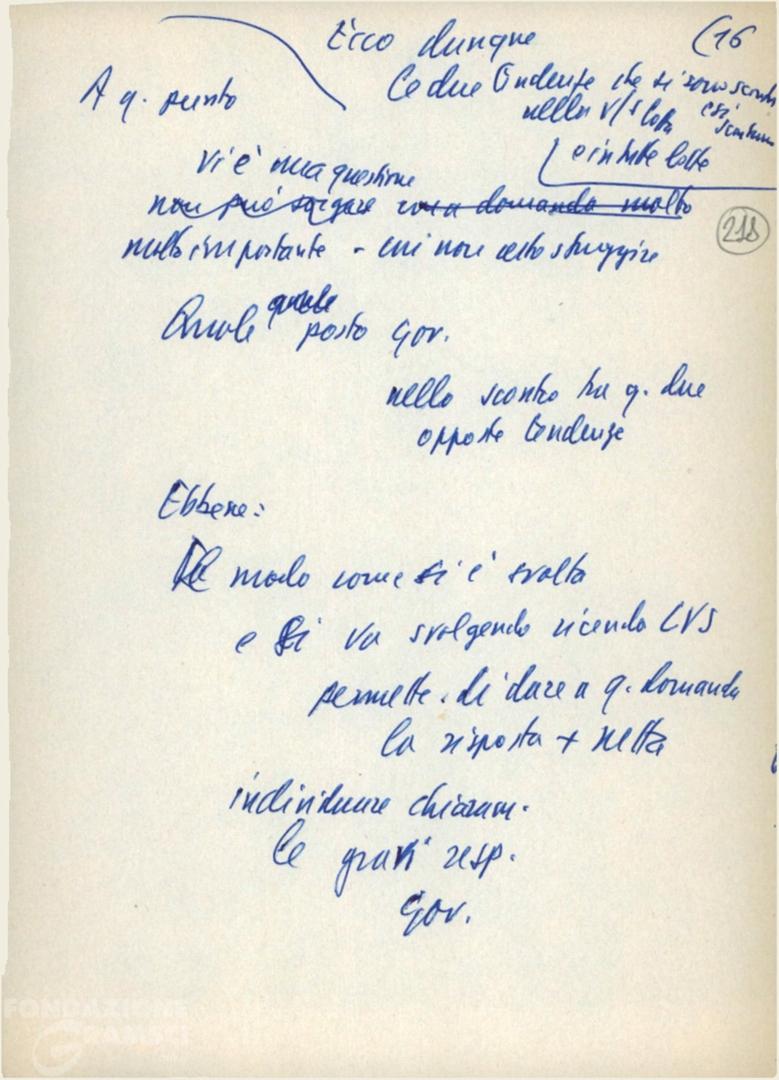 Ecco dunque
(16
A q. punto
le due tendenze che si sono scontrate
nella v/s lotta
e si scontrano
e in tutte lotte
Vi è una questione
non può sorgere una domanda molto
218
molto importante - cui non certo sfuggire
Quale quale posto Gov.
nello scontro tra q. due
opposte tendenze
Ebbene:
Il modo come si è svolta
e si va svolgendo vicenda CVS
permette di dare a q. domanda
la risposta + netta
individuare chiaram.
le gravi resp.
Gov.
FONDAZIONE
GRAMSCI